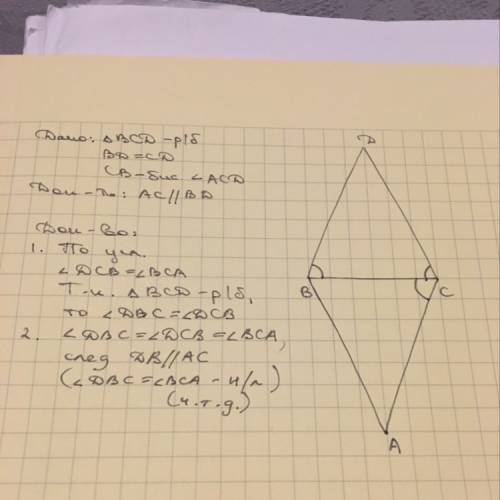 Дано: △BCD - р/б
BD = CD
CB - бис. ∠ACD
Док-ть: AC // BD
Док-во:
1. По усл.
∠DCB = ∠BCA
Т.к. △BCD - р/б,
то ∠DBC = ∠DCB
2. ∠DBC = ∠DCB = ∠BCA,
след DB // AC
(∠DBC = ∠BCA - н/л)
(ч.т.д.)
D
B
C
A